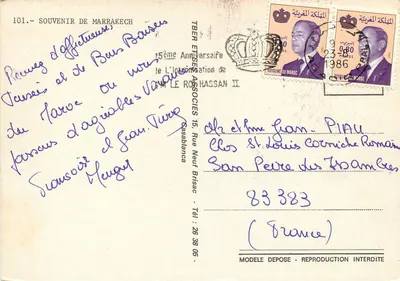 101. - SOUVENIR DE MARRAKECH
Recevez d'affectueuses
Pensées et de Bons Baisers
du Maroc ou nous
passons d'agréables Vacances
Françoise et Jean-Pierre
25ème Anniversaire
de L'Intronisation de
S.M. LE ROI HASSAN II
المملكة المغربية
المملكة المغربية
0,80
ROYAUME DU MAROC
1986
EDITIONS
ASSOCIES 15, Rue Neuf Brisac - Tél : 26 38 05 -
Casablanca
Mr et Mme Jean - PIAU
Clos St. Louis Corniche Romaine
San Peire des Issambres
83383
(France)
MODELE DEPOSE - REPRODUCTION INTERDITE